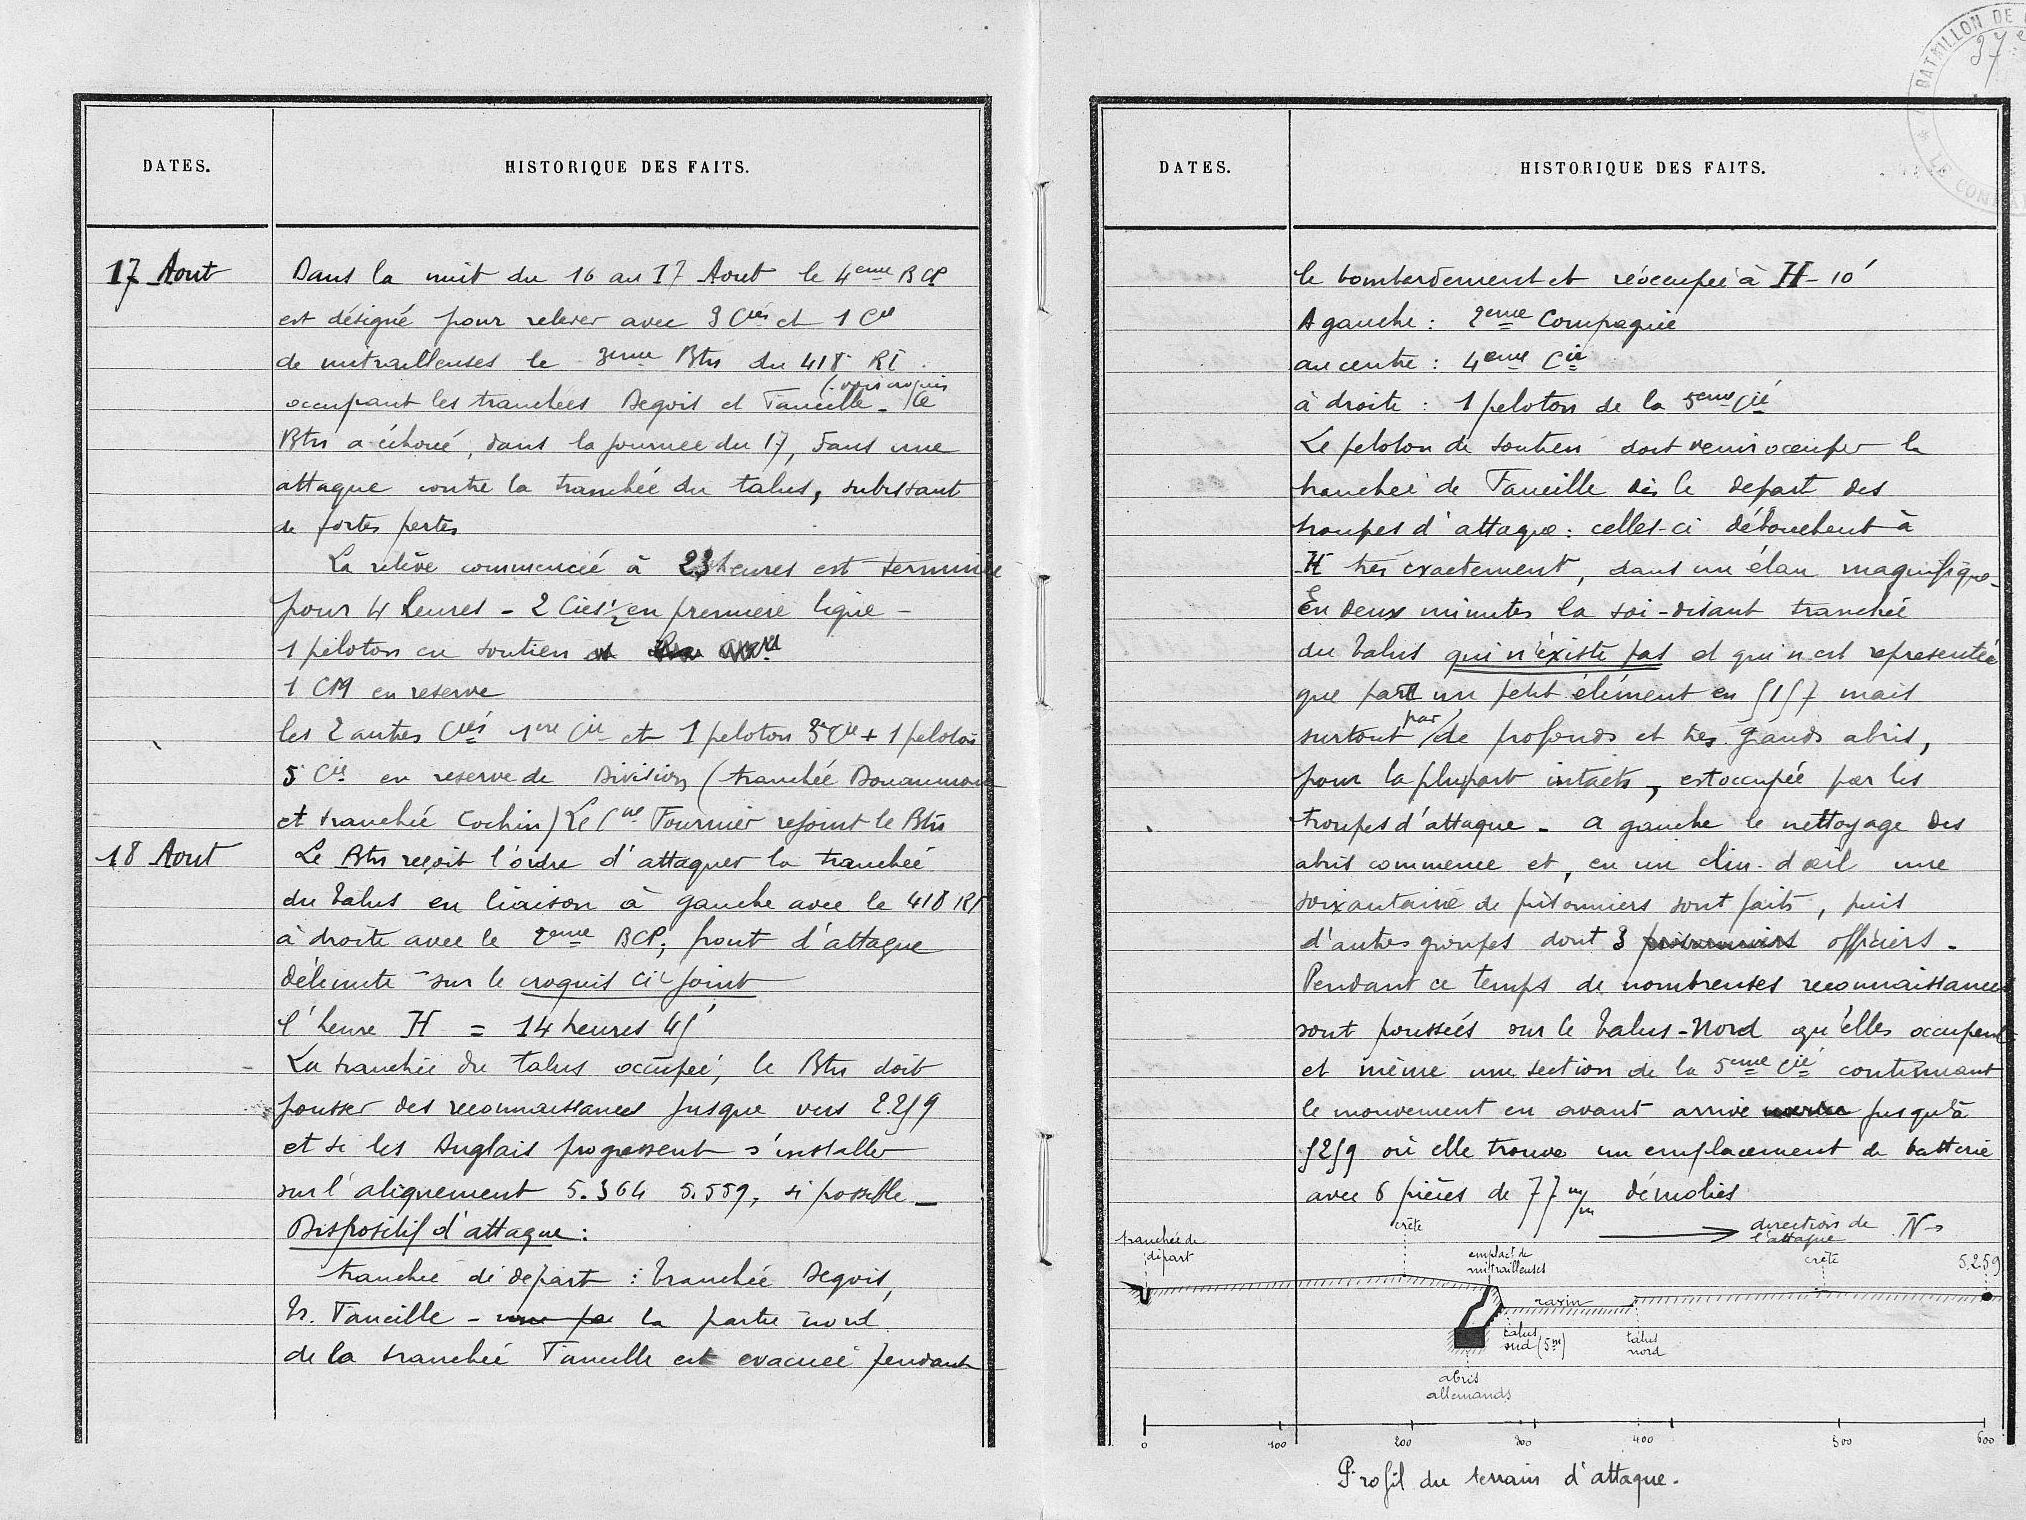 DATES.
HISTORIQUE DES FAITS.
17 Aout
Dans la nuit du 16 au 17 Aout le 4eme BCP
est désigné pour relever avec 3 Cies et 1 Cie
de mitrailleuses le 3eme Btn du 418 RI
(voir croquis
occupant les tranchées Degois et Faucille - Ce
Btn a échoué, dans la journée du 17, dans une
attaque contre la tranchée du talus, subissant
de fortes pertes
La relève commencée à 23 heures est terminée
pour 4 heures - 2 Cies 1/2 en premiere ligne -
1 peloton en soutien et
1 CM en reserve
les 2 autres Cies 1ere Cie et 1 peloton 3e Cie + 1 peloton
5 Cie en reserve de Division (tranchée Douaumont
et tranchée Cochin) Le Cne Fournier rejoint le Btn
18 Aout
Le Btn reçoit l'ordre d'attaquer la tranchée
du talus en liaison à gauche avec le 418 RI
à droite avec le 2eme BCP; front d'attaque
délimité sur le croquis ci-joint
l'heure H = 14 heures 45'
La tranchée du talus occupée, le Btn doit
pousser des reconnaissances jusque vers 5259
et si les Anglais progressent s'installer
sur l'alignement 5.364 5.559, si possible -
Dispositif d'attaque :
tranchée de départ : tranchée Degois,
Tr. Faucille - la partie nord
de la tranchée Faucille est evacuée pendant
BATAILLON DE
37e
LE COMMA
DATES.
HISTORIQUE DES FAITS.
le bombardement et réoccupée à H - 10'
A gauche : 2eme Compagnie
au centre : 4eme Cie
à droite : 1 peloton de la 5eme Cie
Le peloton de soutien doit venir occuper la
tranchée de Faucille dès le depart des
troupes d'attaque : celles-ci débouchent à
H très exactement, dans un élan magnifique -
En deux minutes la soi-disant tranchée
du talus qui n'éxiste pas et qui n'est representée
que par un petit élément en 5157 mais
surtout par de profonds et très grands abris,
pour la plupart intacts, est occupée par les
troupes d'attaque - a gauche le nettoyage des
abris commence et, en un clin d'oeil une
soixantaine de prisonniers sont faits, puis
d'autres groupes dont 3 prisonniers officiers -
Pendant ce temps de nombreuses reconnaissances
sont poussées sur le talus-Nord qu'elles occupent
et même une section de la 5eme Cie continuant
le mouvement en avant arrive jusqu'à
5259 où elle trouve un emplacement de batterie
avec 6 pièces de 77 m/m démolies
tranchée de
départ
crête
emplact de
mitrailleuses
direction de
l'attaque
N
crête
5259
ravin
talus
sud (5m)
talus
nord
abris
allemands
0 100 200 300 400 500 600
Profil du terrain d'attaque.